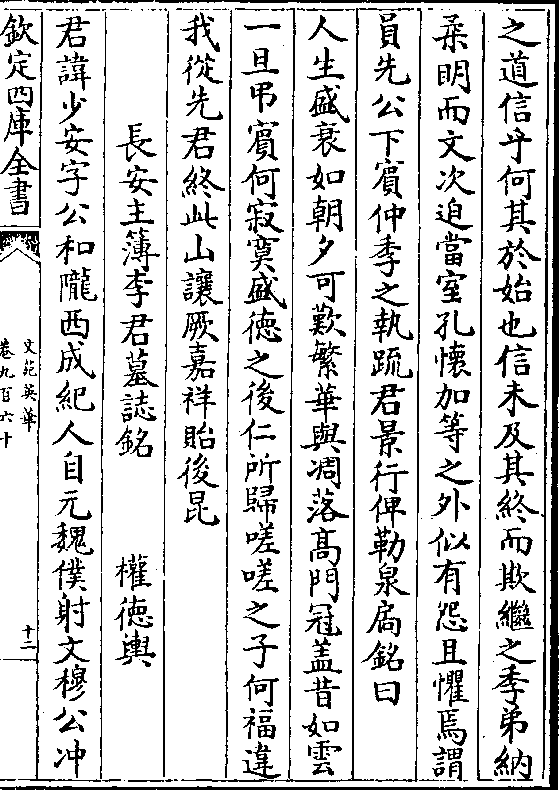 之道信乎何其於始也信未及其終而欺繼之季弟納
柔明而文次迫當室孔懷加等之外似有怨且懼焉謂
員先公下賓仲季之執䟽君景行俾勒泉扄銘曰
人生盛衰如朝夕可歎繁華與凋落髙門冠盖昔如雲
一旦弔賓何寂寞盛徳之後仁所歸嗟嗟之子何福違
我從先君終此山讓厥嘉祥貽後昆
長安主簿李君墓誌銘 權徳輿
君諱少安字公和隴西成紀人自元魏僕射文穆公冲
欽定四庫全書
文苑英華
卷九百六十
十二